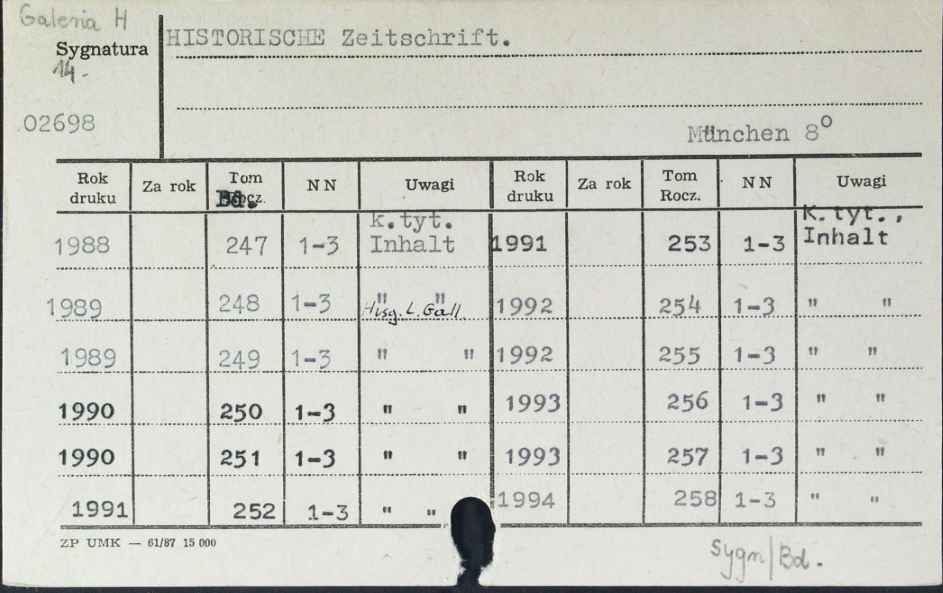 Galeria H
Sygnatura
14.
02698
HISTORISCHE Zeitschrift.
München 8°
Rok druku Za rok Tom Rocz. Bd. NN Uwagi Rok druku Za rok Tom Rocz. NN Uwagi
1988 247 1-3 k.tyt. Inhalt 1991 253 1-3 K.tyt., Inhalt
1989 248 1-3 " " Hrsg. L. Gall. 1992 254 1-3 " "
1989 249 1-3 " " 1992 255 1-3 " "
1990 250 1-3 " " 1993 256 1-3 " "
1990 251 1-3 " " 1993 257 1-3 " "
1991 252 1-3 " " 1994 258 1-3 " "
ZP UMK — 61/87 15 000
Sygn/Bd.